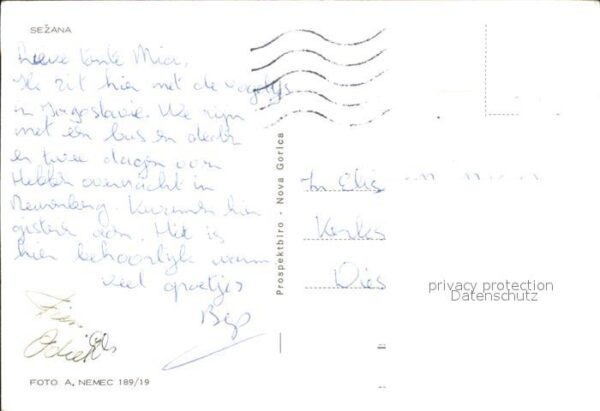 SEŽANA
Lieve tante Mia,
Ik zit hier met de
in Yogoslavie. We zijn
met een bus en deden
er twee dagen over
Hebben overnacht in
Neurenberg. Kwamen hier
gisteren aan. Het is
hier behoorlijk warm
veel groetjes
Bep
FOTO A, NEMEC 189/19
Prospektbiro - Nova Gorica
Kerks
Dies
privacy protection
Datenschutz